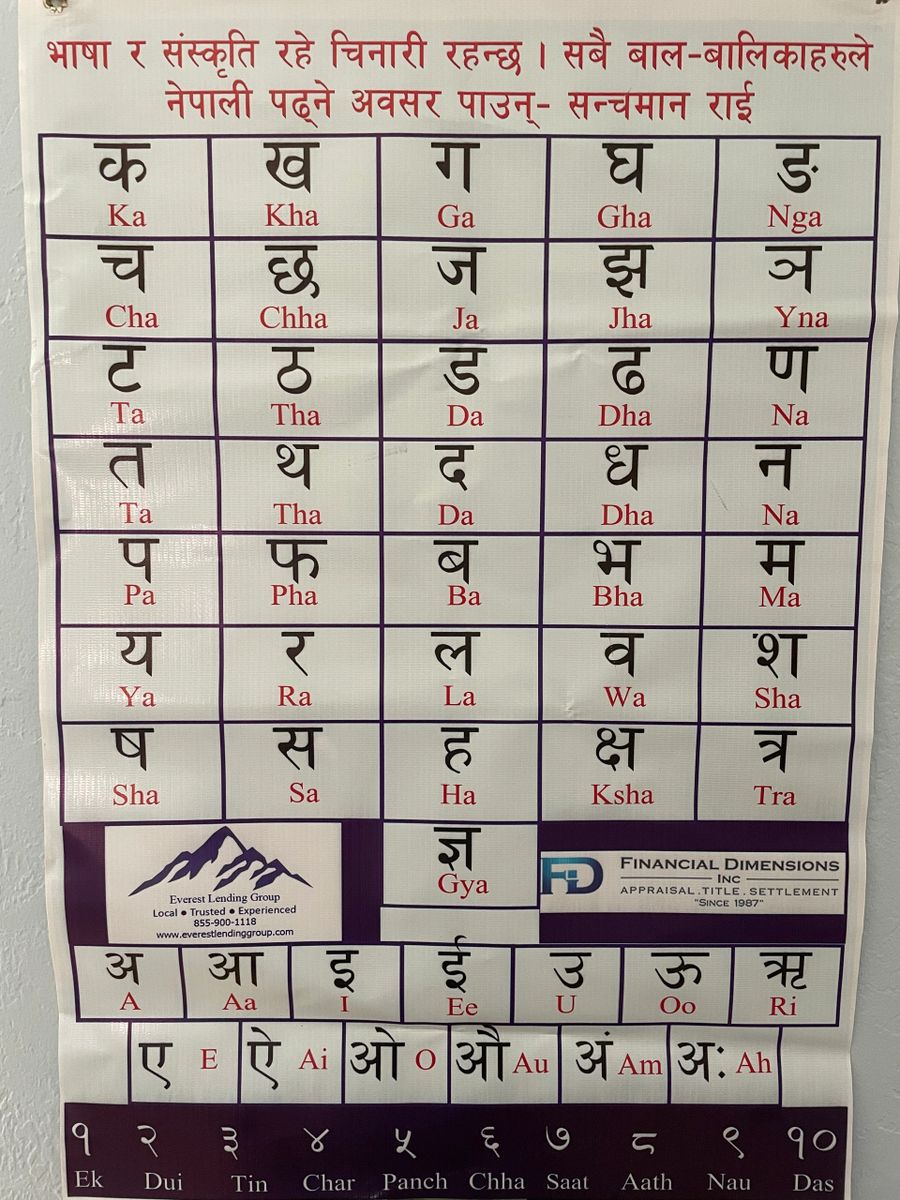 भाषा र संस्कृति रहे चिनारी रहन्छ । सबै बाल-बालिकाहरुले
नेपाली पढ्ने अवसर पाउन्- सन्चमान राई
क ख ग घ ङ
Ka Kha Ga Gha Nga
च छ ज झ ञ
Cha Chha Ja Jha Yna
ट ठ ड ढ ण
Ta Tha Da Dha Na
त थ द ध न
Ta Tha Da Dha Na
प फ ब भ म
Pa Pha Ba Bha Ma
य र ल व श
Ya Ra La Wa Sha
ष स ह क्ष त्र
Sha Sa Ha Ksha Tra
Everest Lending Group
Local ● Trusted ● Experienced
855-900-1118
www.everestlendinggroup.com
ज्ञ
Gya
FD FINANCIAL DIMENSIONS
INC
APPRAISAL . TITLE . SETTLEMENT
"SINCE 1987"
अ आ इ ई उ ऊ ऋ
A Aa I Ee U Oo Ri
ए E ऐ Ai ओ O औ Au अं Am अः Ah
१ २ ३ ४ ५ ६ ७ ८ ९ १०
Ek Dui Tin Char Panch Chha Saat Aath Nau Das